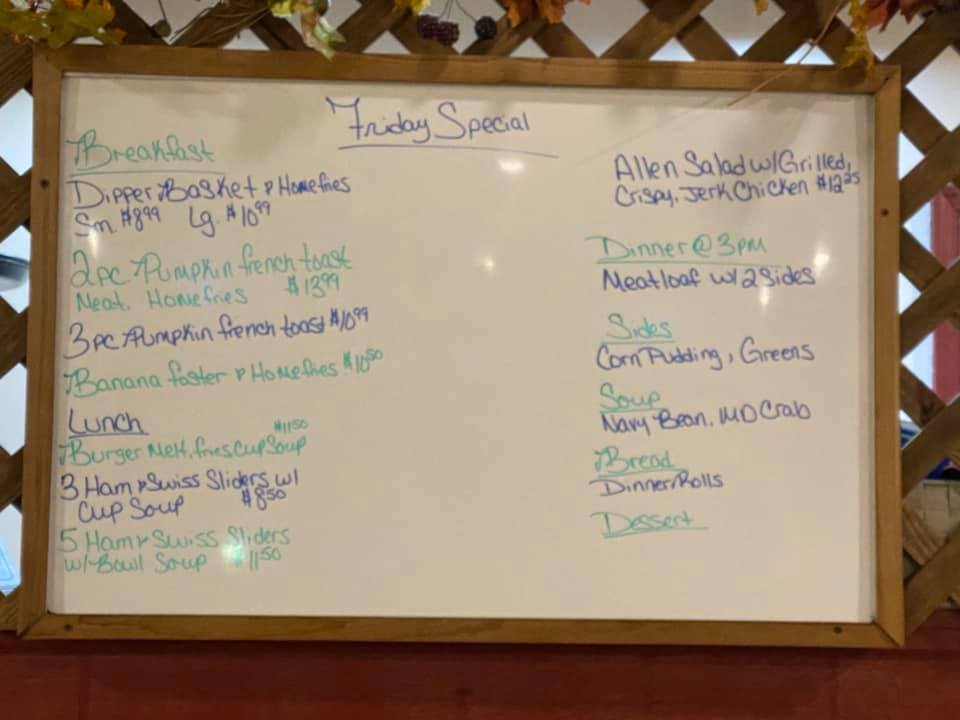 Friday Special
Breakfast
Dipper Basket & Homefries
Sm $8.99 Lg. $10.99
2pc Pumpkin french toast
Meat, Homefries $13.99
3pc Pumpkin french toast $10.99
Banana foster & Homefries $10.50
Lunch
Burger Melt, fries, Cup Soup $11.50
3 Ham & Swiss Sliders w/
Cup Soup $8.50
5 Ham & Swiss Sliders
w/ Bowl Soup $11.50
Allen Salad w/ Grilled,
Crispy, Jerk Chicken $12.25
Dinner @ 3pm
Meatloaf w/ 2 Sides
Sides
Corn Pudding, Greens
Soup
Navy Bean, MD Crab
Bread
Dinner Rolls
Dessert